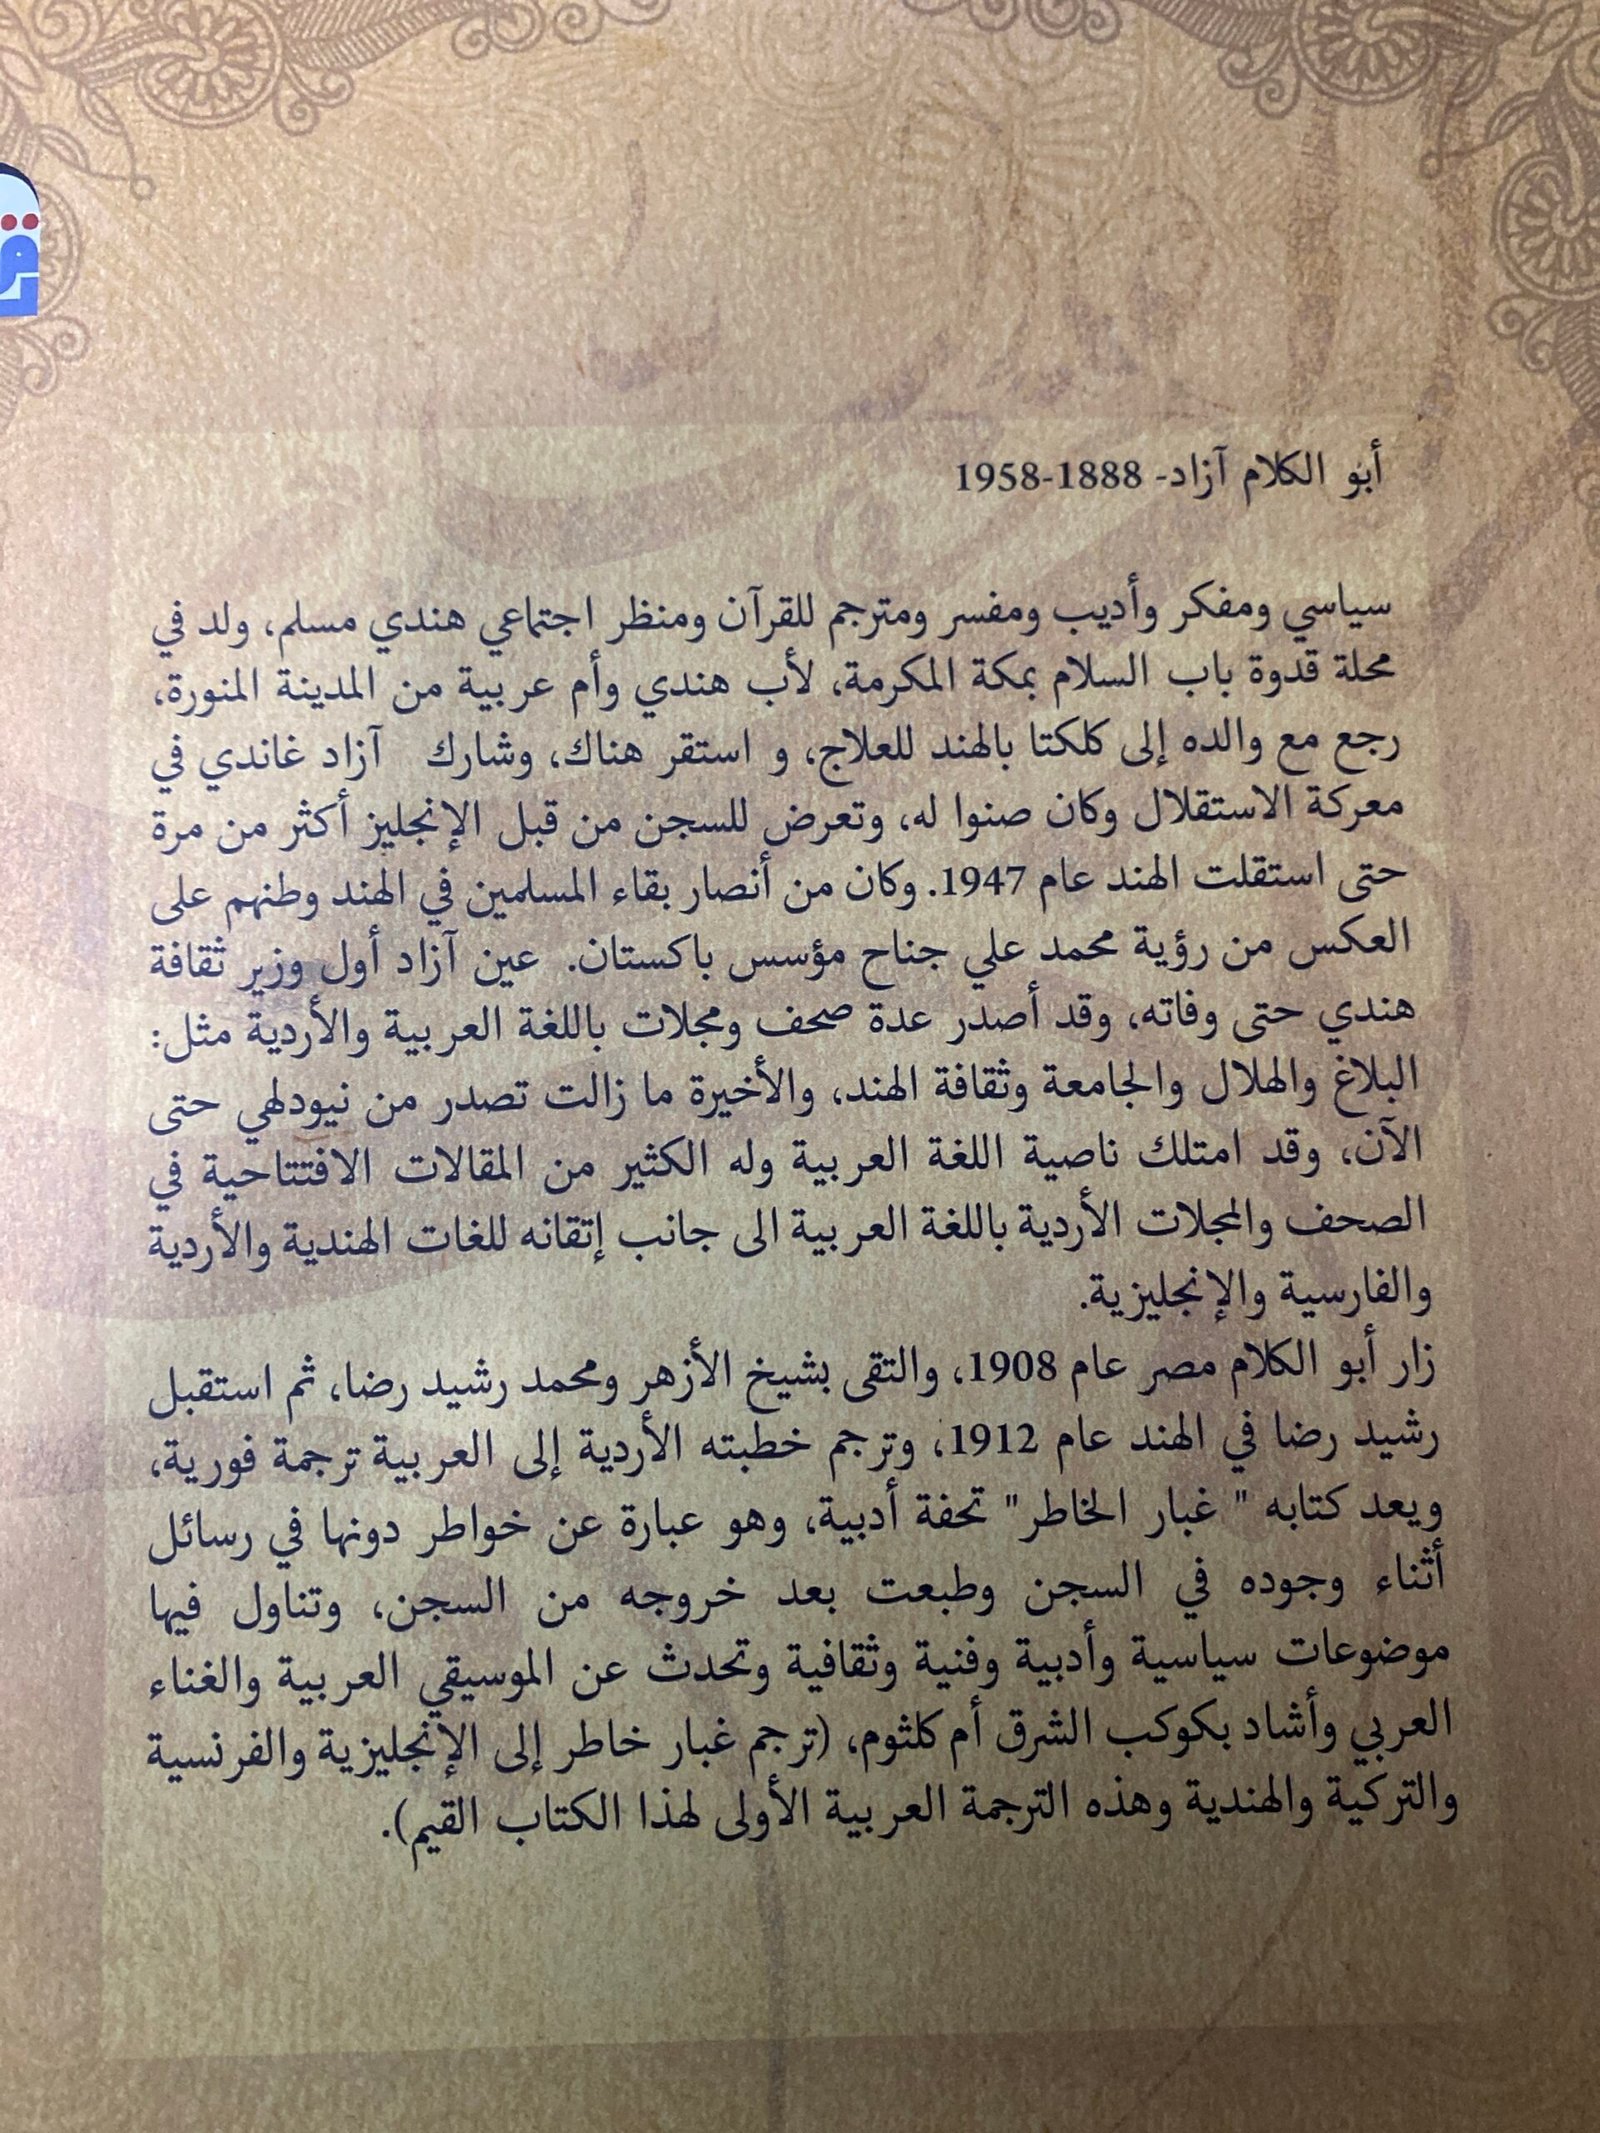 أبو الكلام آزاد- 1888-1958
سياسي ومفكر وأديب ومفسر ومترجم للقرآن ومنظر اجتماعي هندي مسلم، ولد في
محلة قدوة باب السلام بمكة المكرمة، لأب هندي وأم عربية من المدينة المنورة،
رجع مع والده إلى كلكتا بالهند للعلاج، و استقر هناك، وشارك آزاد غاندي في
معركة الاستقلال وكان صنوا له، وتعرض للسجن من قبل الإنجليز أكثر من مرة
حتى استقلت الهند عام 1947. وكان من أنصار بقاء المسلمين في الهند وطنهم على
العكس من رؤية محمد علي جناح مؤسس باكستان. عين آزاد أول وزير ثقافة
هندي حتى وفاته، وقد أصدر عدة صحف ومجلات باللغة العربية والأردية مثل:
البلاغ والهلال والجامعة وثقافة الهند، والأخيرة ما زالت تصدر من نيودلهي حتى
الآن، وقد امتلك ناصية اللغة العربية وله الكثير من المقالات الافتتاحية في
الصحف والمجلات الأردية باللغة العربية الى جانب إتقانه للغات الهندية والأردية
والفارسية والإنجليزية.
زار أبو الكلام مصر عام 1908، والتقى بشيخ الأزهر ومحمد رشيد رضا، ثم استقبل
رشيد رضا في الهند عام 1912، وترجم خطبته الأردية إلى العربية ترجمة فورية،
ويعد كتابه " غبار الخاطر" تحفة أدبية، وهو عبارة عن خواطر دونها في رسائل
أثناء وجوده في السجن وطبعت بعد خروجه من السجن، وتناول فيها
موضوعات سياسية وأدبية وفنية وثقافية وتحدث عن الموسيقي العربية والغناء
العربي وأشاد بكوكب الشرق أم كلثوم، (ترجم غبار خاطر إلى الإنجليزية والفرنسية
والتركية والهندية وهذه الترجمة العربية الأولى لهذا الكتاب القيم).